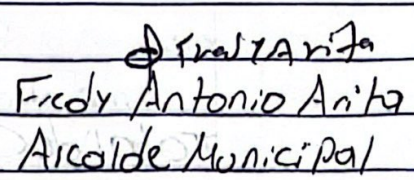 Fredy Arita
Fredy Antonio Arita
Alcalde Municipal